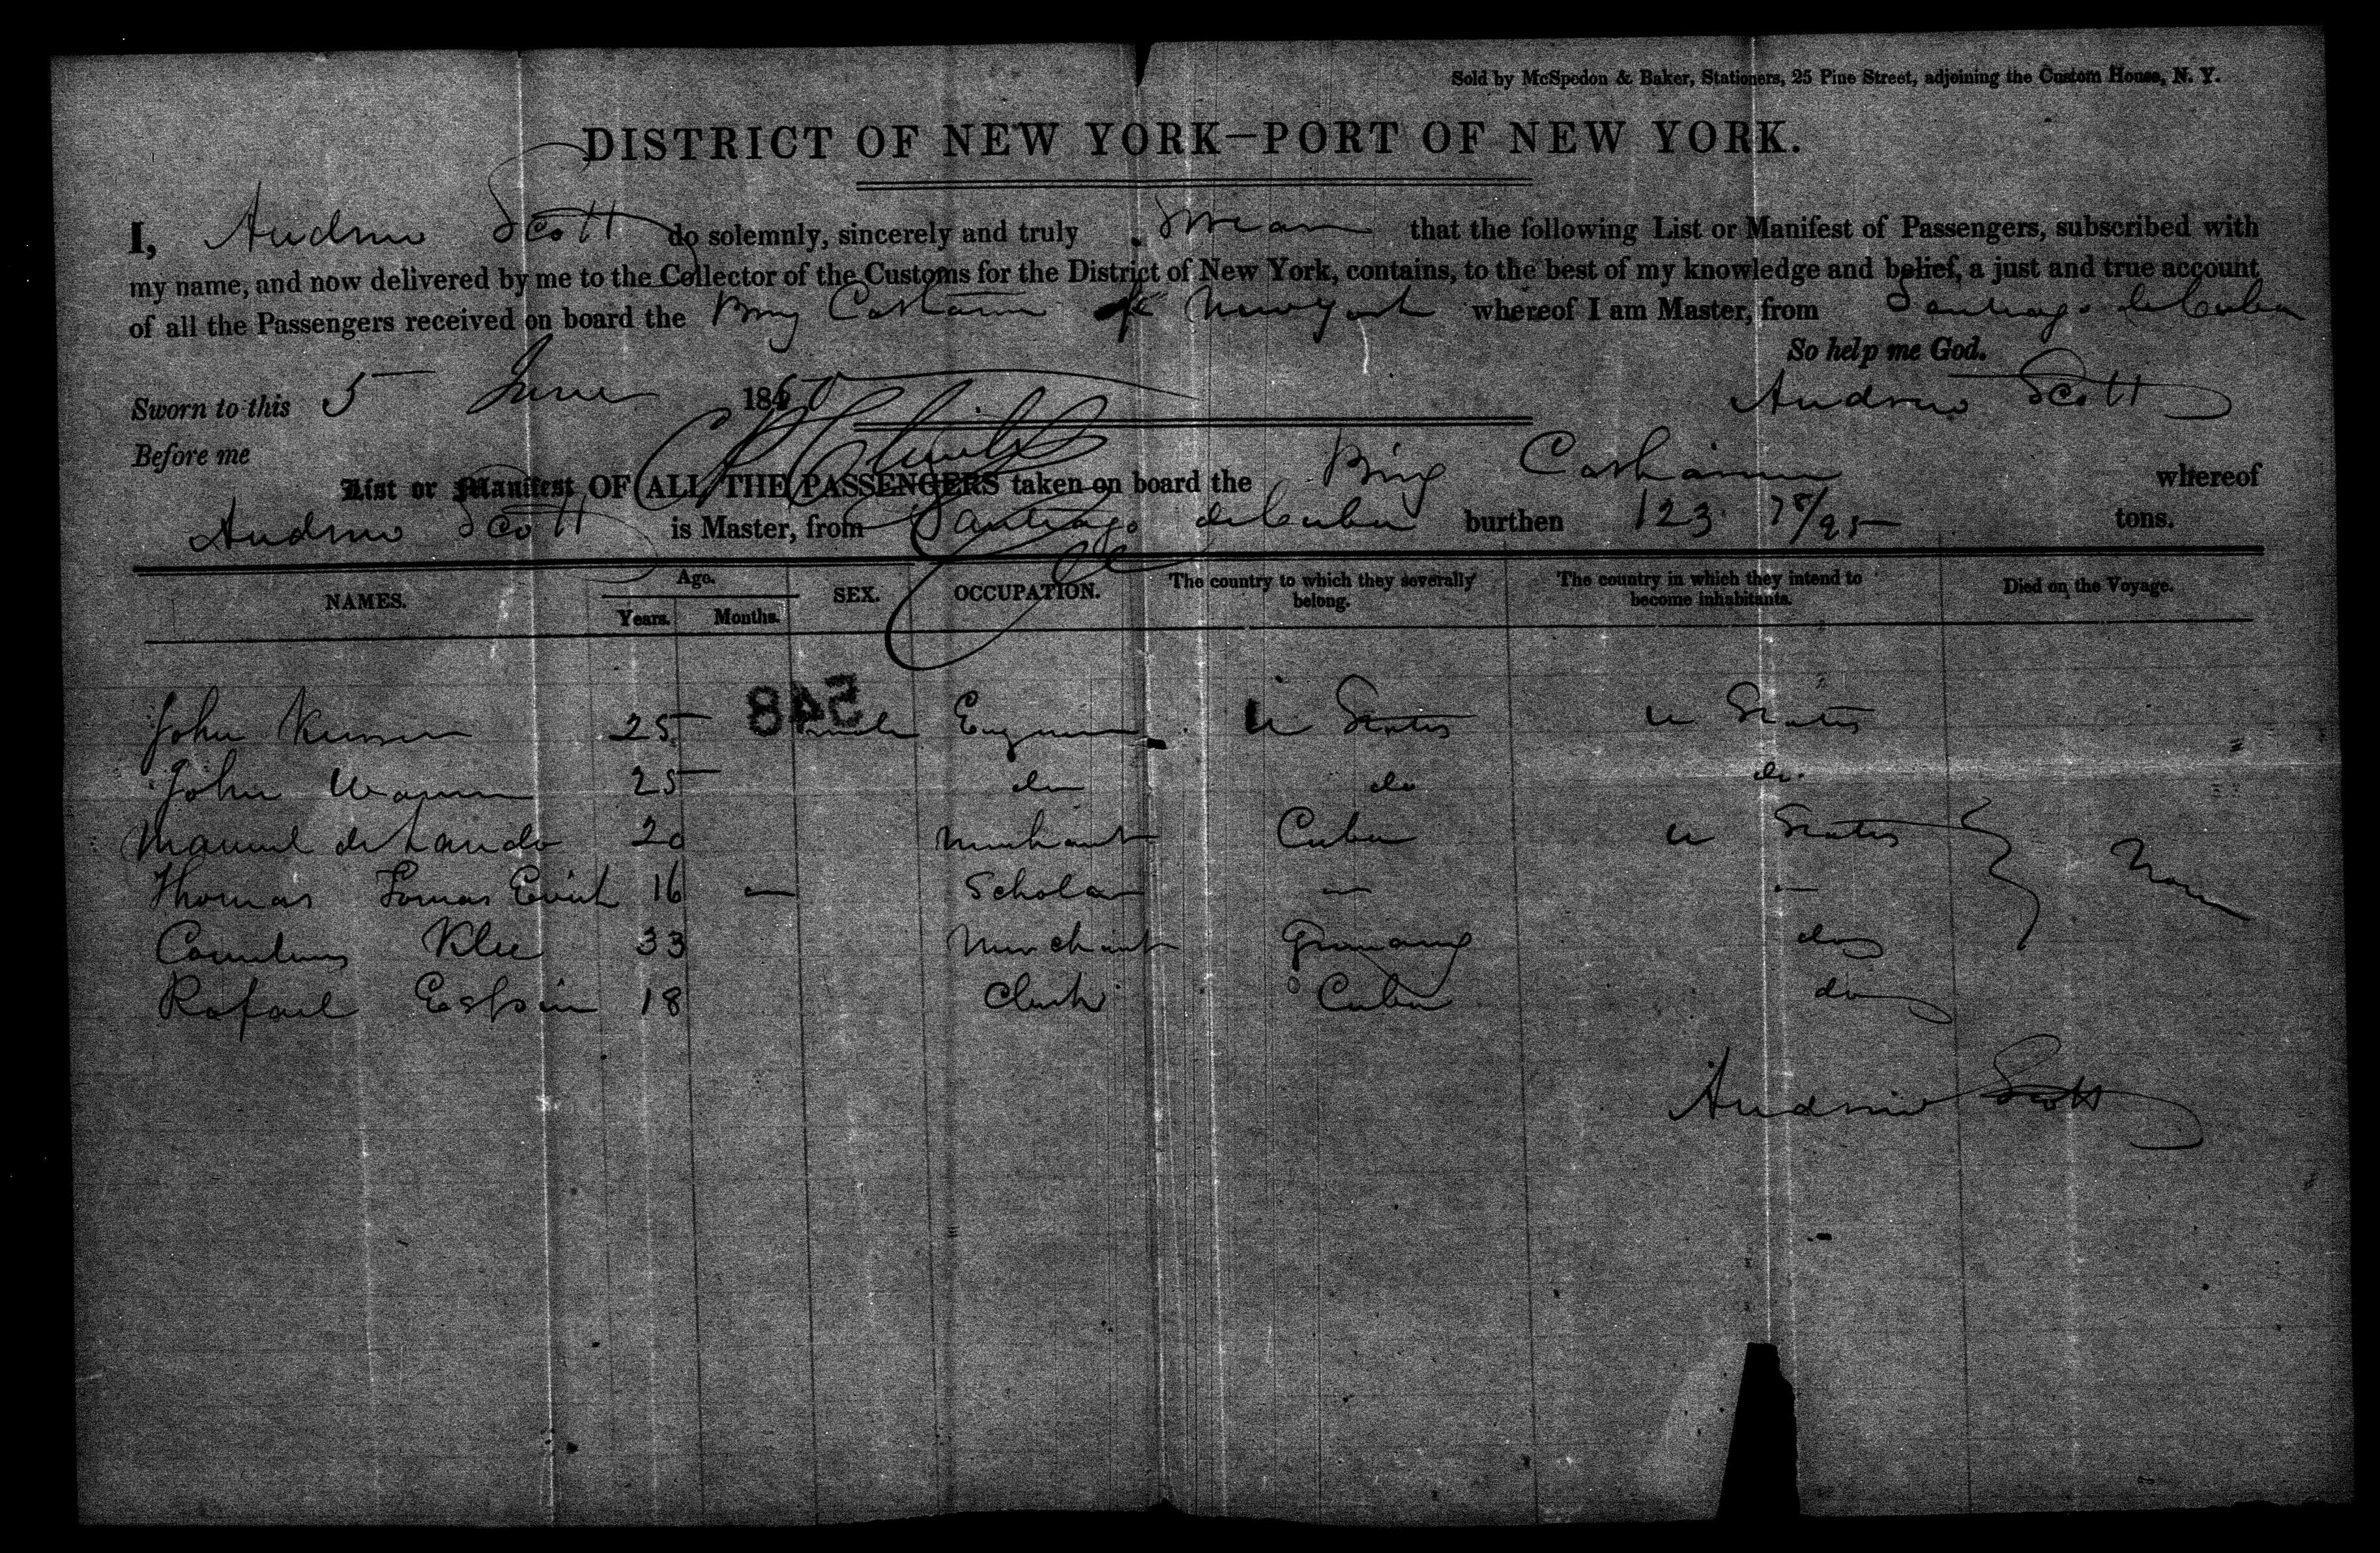 Sold by McSpedon & Baker, Stationers, 25 Pine Street, adjoining the Custom House, N. Y.
DISTRICT OF NEW YORK—PORT OF NEW YORK.
I, Andrew Scott do solemnly, sincerely and truly swear that the following List or Manifest of Passengers, subscribed with
my name, and now delivered by me to the Collector of the Customs for the District of New York, contains, to the best of my knowledge and belief, a just and true account
of all the Passengers received on board the Brig of New York whereof I am Master, from Santiago de Cuba
So help me God.
Sworn to this 5 June 1850 Andrew Scott
Before me
List or Manifest OF ALL THE PASSENGERS taken on board the Brig whereof
Andrew Scott is Master, from Santiago de Cuba burthen 123 78/95 tons.
NAMES. Age. Years. Months. SEX. OCCUPATION. The country to which they severally belong. The country in which they intend to become inhabitants. Died on the Voyage.
548
John 25 male U States U States
John 25 do do do
Manuel de 20 Merchant Cuba U States None
Thomas 16 — Scholar — —
Klee 33 Merchant Germany do
Rafael 18 Clerk Cuba do
Andrew Scott